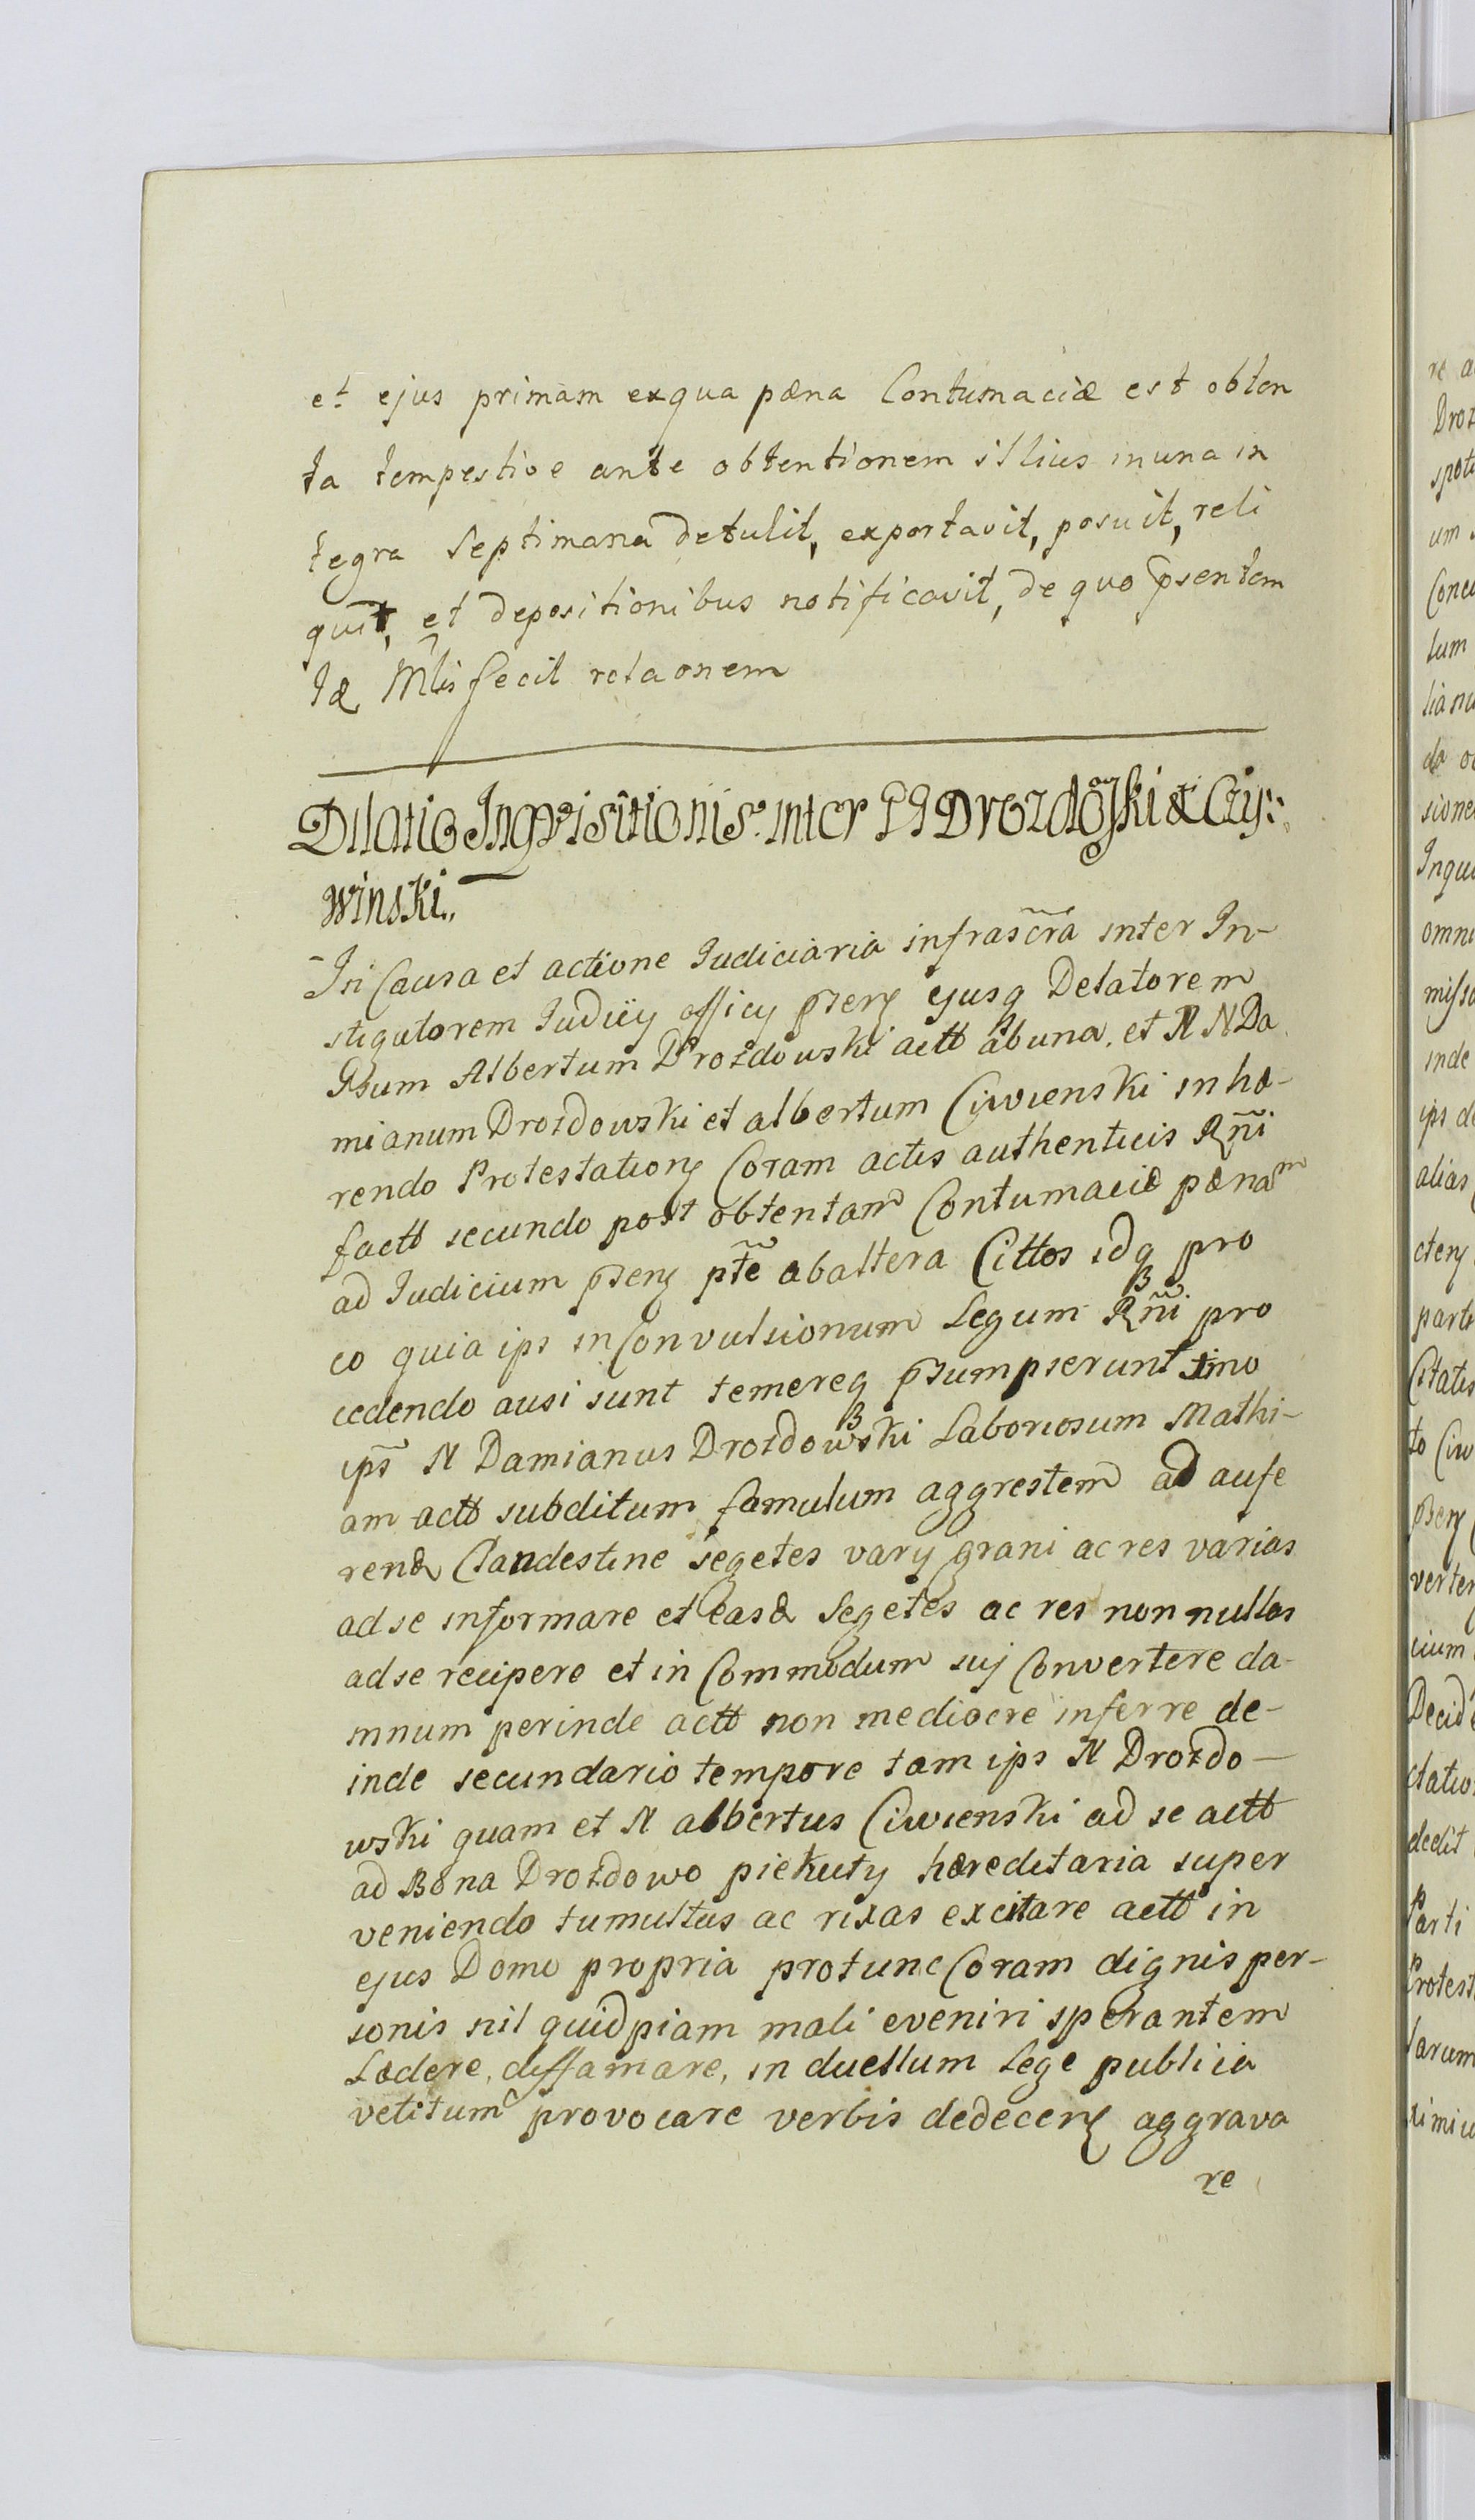 et ejus primam exqua pæna Contumaciæ est obten
ta tempestive ante obtentionem illius inuna in
tegra Septimana detulit, exportavit, posuit, reli
quit, et depositionibus notificavit, de quo p̃sentem
Id Mlis fecit rolaonem
Dilatio Inqvisitionis inter GG Drozdowski & Ciy:
winski.
In Causa et actione Iudiciaria infrascr̃a inter In-
stigatorem Iudicÿ officÿ p̃sen ejusq Delatorem
Gsum Albertum Drozdowski actt abuna. et N N Da
mianum Drozdowski et albertum Ciwienski inhæ-
rendo Protestation Coram actis authenticis Rñi
factt secundo post obtentam Contumaciæ pænam
ad Iudicium p̃sen pt̃e abaltera Cittos idq pro
eo quia ips in Convulsionum Legum Rñi pro
cedendo ausi sunt temereq p̃sumpserunt imo
ips̃ N Damianus Drozdowski Laboriosum Mathi-
am actt subditum famulum aggrestem ad aufe
rend Clandestine segetes varÿ grani ac res varias
ad se informare et easd Segetes ac res non nullas
ad se recipere et in Commodum suj Convertere da-
mnum perinde actt non mediocre inferre de-
inde secundario tempore tam ips N Drozdo-
wski quam et N albertus Ciwienski ad se actt
ad Bona Drozdowo piekuty hæreditaria super
veniendo tumultus ac rixas excitare actt in
ejus Domo propria protunc Coram dignis per-
sonis nil quidpiam mali eveniri sperantem
Lædere, diffamare, in duellum Lege publica
vetitum provocare verbis dedecen aggrava
re